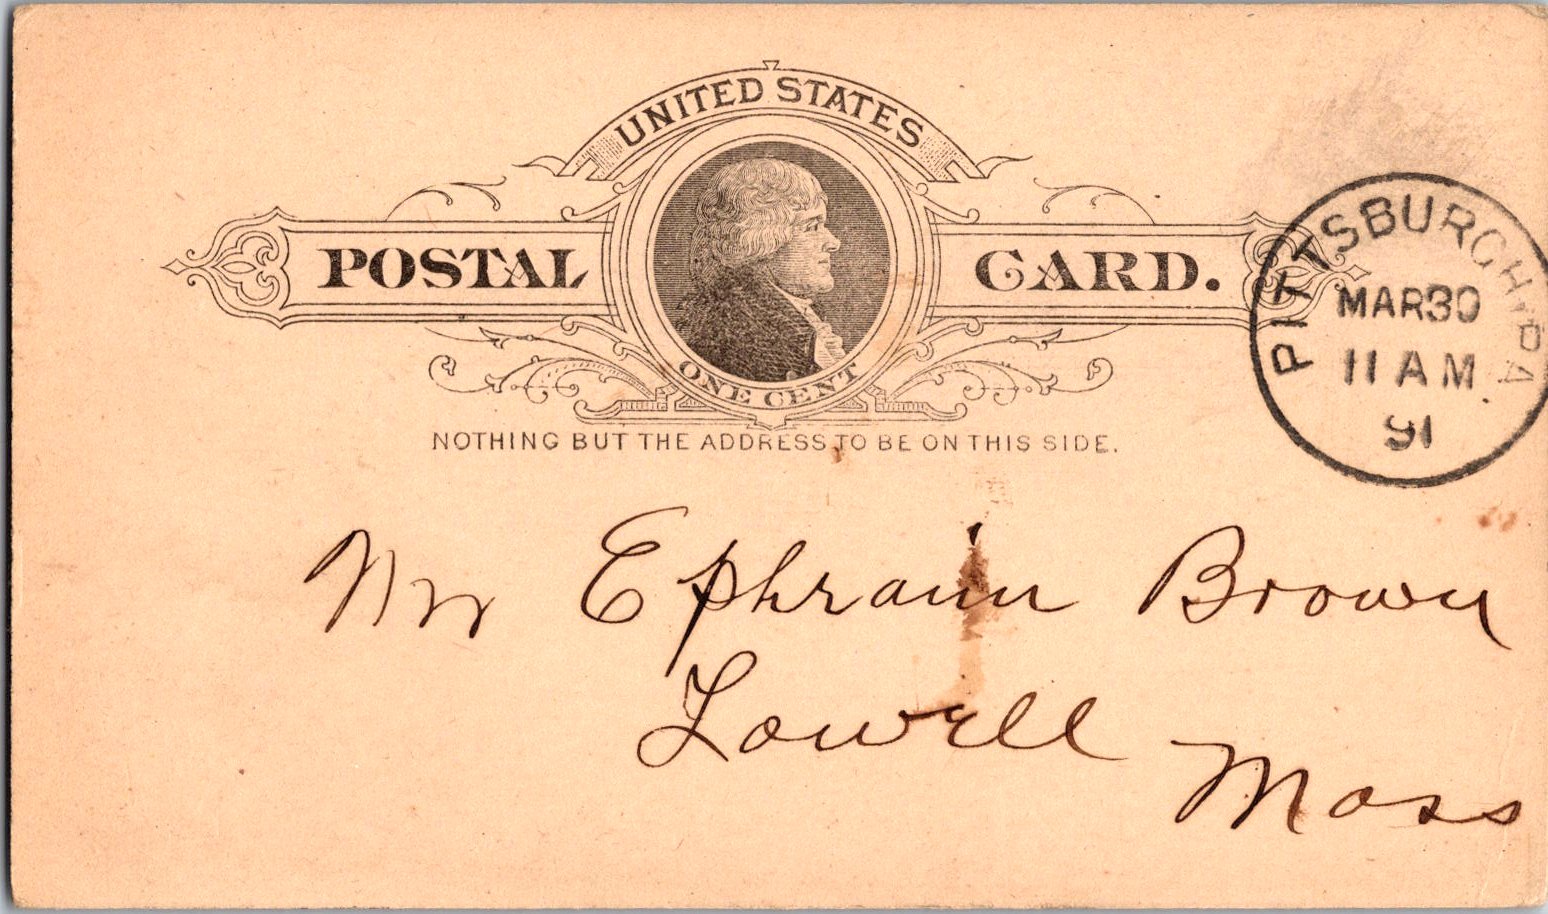 UNITED STATES
POSTAL CARD.
ONE CENT
NOTHING BUT THE ADDRESS TO BE ON THIS SIDE.
PITTSBURGH, PA
MAR30
11 AM
91
Mr Ephraim Brown
Lowell
Mass